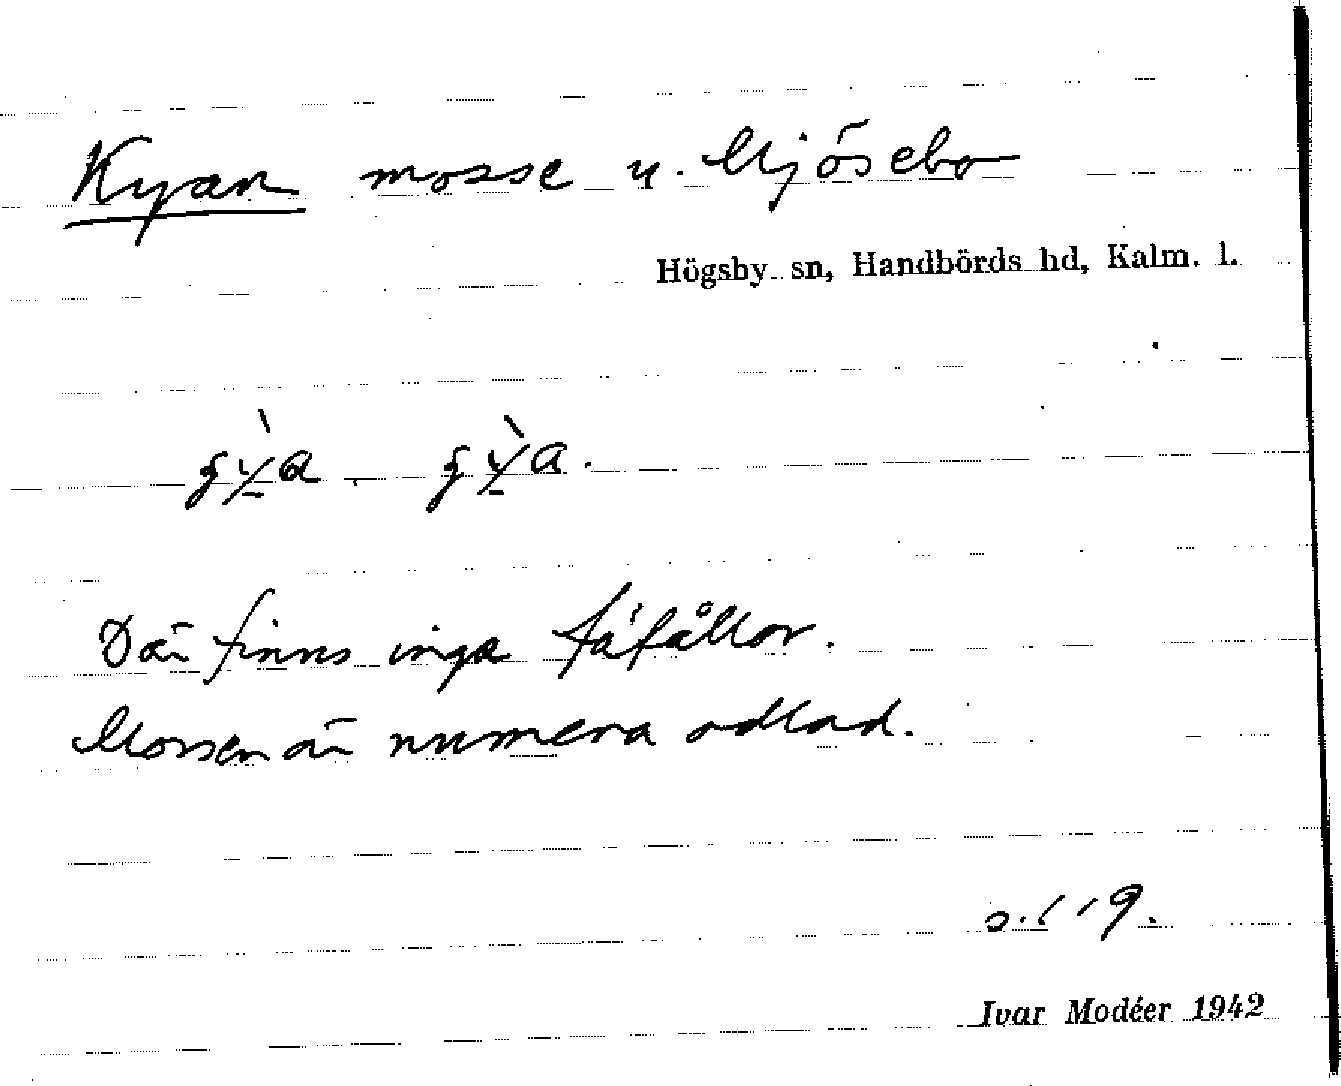 Kyan mosse u. Mjösebo
Högsby sn, Handbörds hd, Kalm. l.
Där finns inga fäfållor.
Mossen är numera odlad.
Ivar Modéer 1942